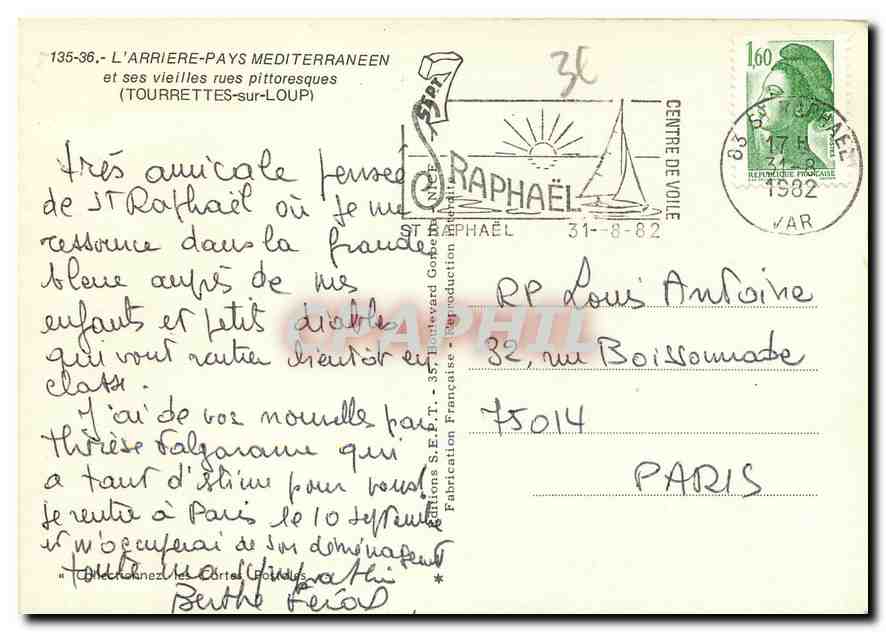 135-36.- L'ARRIERE-PAYS MEDITERRANEEN
et ses vieilles rues pittoresques
(TOURRETTES-sur-LOUP)
très amicale pensée
de ST Raphaël où je me
ressource dans la grande
bleue auprès de mes
enfants et petits diables
qui vont rentrer bientôt en
classe.
J'ai de vos nouvelles par
Thérèse qui
a tant d'estime pour vous!
je rentre à Paris le 10 septembre
et m'occuperai de son déménagement
toute ma sympathie
Berthe
« Collectionnez les Cartes Postales
*
Editions S.E.P.T. - 35, Boulevard Gorbella - NICE
Fabrication Française - Reproduction interdite
CPAPHIL
7
SEPT
ST RAPHAËL
CENTRE DE VOILE
ST RAPHAËL 31-8-82
36
1,60
POSTES
REPUBLIQUE FRANÇAISE
83 ST RAPHAEL
17 H
31-8
1982
VAR
RP Louis Antoine
32, rue Boissonnade
75014
PARIS